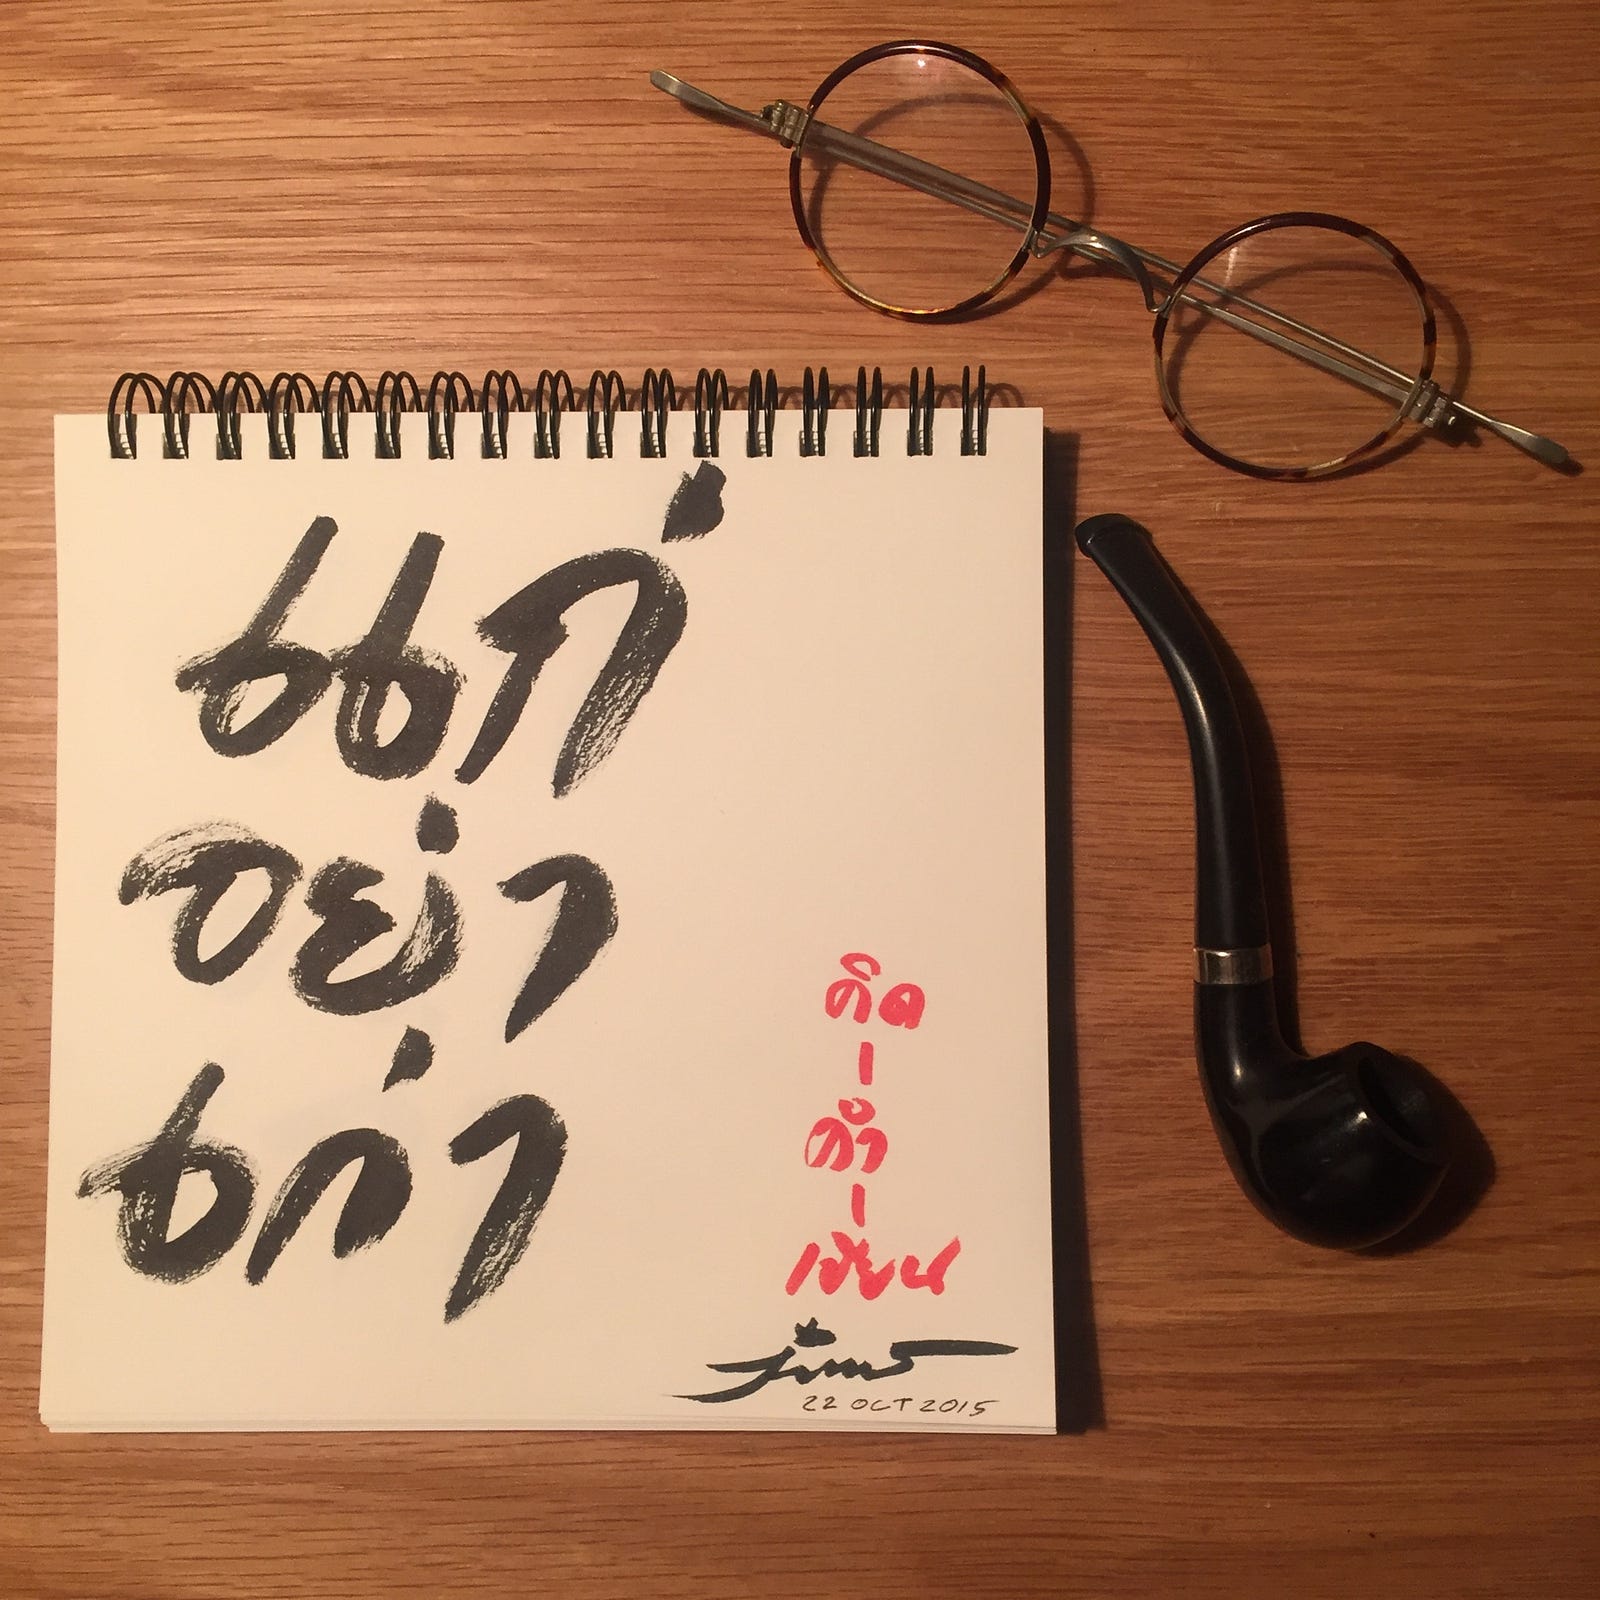 แก่
อย่า
เก่า
คิด
-
คำ
-
เขียน
22 OCT 2015